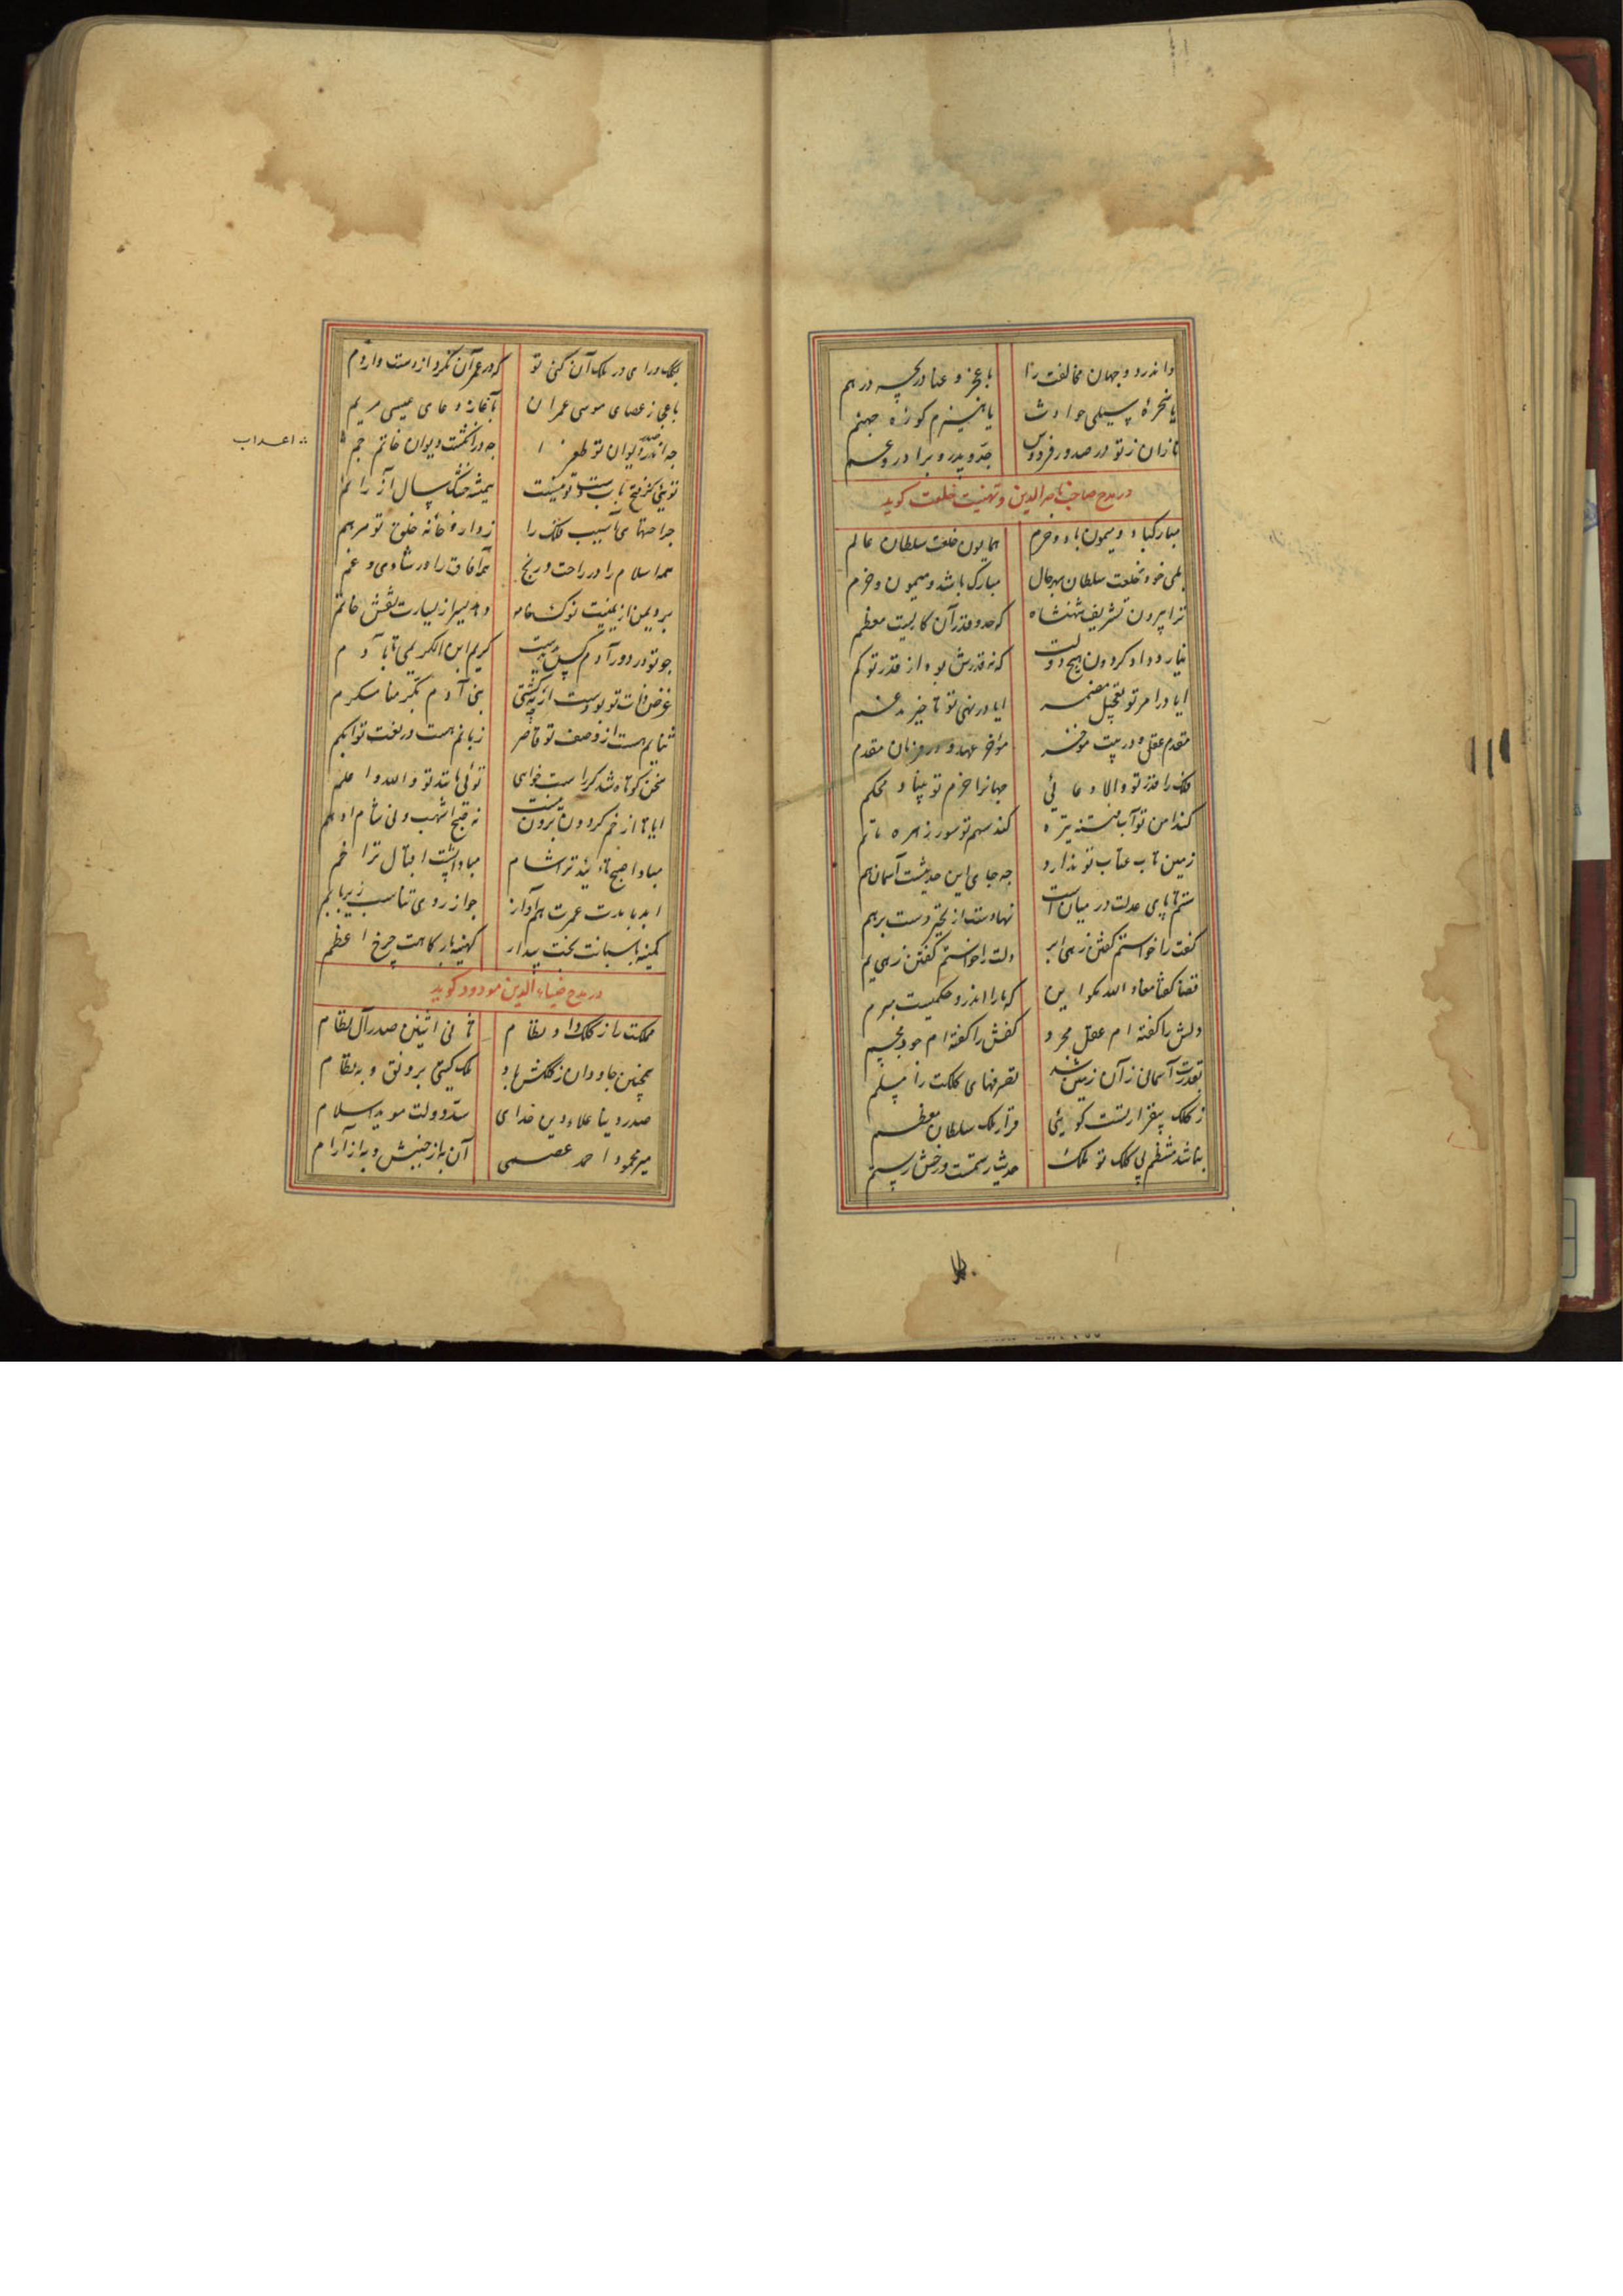 واندر دو جهان مخالفت را با عجز و عنا دریچه در هم
یا سخرهٔ سیلی حوادث یا هیزم کوزه جهنم
نازان ز تو در صدور فردوس جد و پدر و برادر و عم
در مدح صاحب ناصرالدین و تهنیت خلعت کوید
مبارکباد و میمون باد و خرم همایون خلعت سلطان عالم
بلی خود خلعت سلطان بهر حال مبارک باشد و میمون و خرم
ترا پیرون تشریف شهنشاه که حد و قدر آن کاریست معظم
نیارد داد کردون هیچ دولت که نه قدرش بود از قدر تو کم
ایا در امر تو تعجیل مضمر ایا در نهی تو تاخیر مدغم
مقدم عقلی و در پیت موخر مواخر عهد و در زمان مقدم
فلک را قدر تو والا و عالی جهانرا حزم تو بنیاد محکم
کند امن تو آب فتنه تیره کند سهم تو سور زهره ماتم
زمین تاب عتاب تو ندارد چه جای این حدیثست آسمان هم
ستم تا پای عدلت در میانست نهادست از تحیر دست بر هم
کفت را خواستم کفتن زهی ابر دلت را خواستم کفتن زهی یم
قضا کفتا معاذ الله مکو این که ما را اندرو حکمیست مبرم
دلش را کفته ام عقل مجرد کفش را کفته ام جود مجسم
بقدرت آسمان زآن زمین شد تصرفهای کلکت را مسلم
ز کلک بیقرارتست کوئی قرار ملک سلطان معظم
نباشد منتظم بی کلک تو ملک حدیث رستمست و رخش رستم
بکلک و رای در ملک آن کنی تو که در عمر آن نکرد از دست وارم
باعجاز عصای موسی عمران بآثار دعای عیسی مریم
چه اندر صدر دیوان تو طغرا چه در انکشت دیوان خاتم جم
اعداب
جراحتهای آسیب فلک را ز داروخانه خلق تو مرهم
همه اسلام را در راحت و رنج همه آفاق را در شادی و غم
برد یمن از یمینت نوک خامه دهد یسر از یسارت نقش خاتم
چو تو در دور آدم کس ندیدست کریم ابن الکریمی تا بآدم
غرض ذات تو بودست ار نه کشتی بنی آدم بکرمنا مکرم
ثنایم هست از وصف تو قاصر زبانم هست در نعت تو ابکم
سخن کوتاه شد کر راست خواهی توئی مانند تو والله اعلم
الا تا از خم کردون برونست نه صبح اشهب و نی شام ادهم
مبادا صبح تایید ترا شام مبادا پشت اقبال ترا خم
ابد با مدت عمرت هم آواز چو از روی تناسب زیر با بم
کمینه پاسبانت بخت بیدار کهینه بارکاهت چرخ اعظم
در مدح ضیاء الدین مودود کوید
مملکت را ز کلک داد نظام ثانی اثنین صدر آل نظام
همچنین جاودان ز کلکش باد ملک کیتی برونق و بنظام
صدر دنیا علاء دین خدای سید دولت موید اسلام
میر محمود احمد عصمی آن به از جنبش و به از آرام